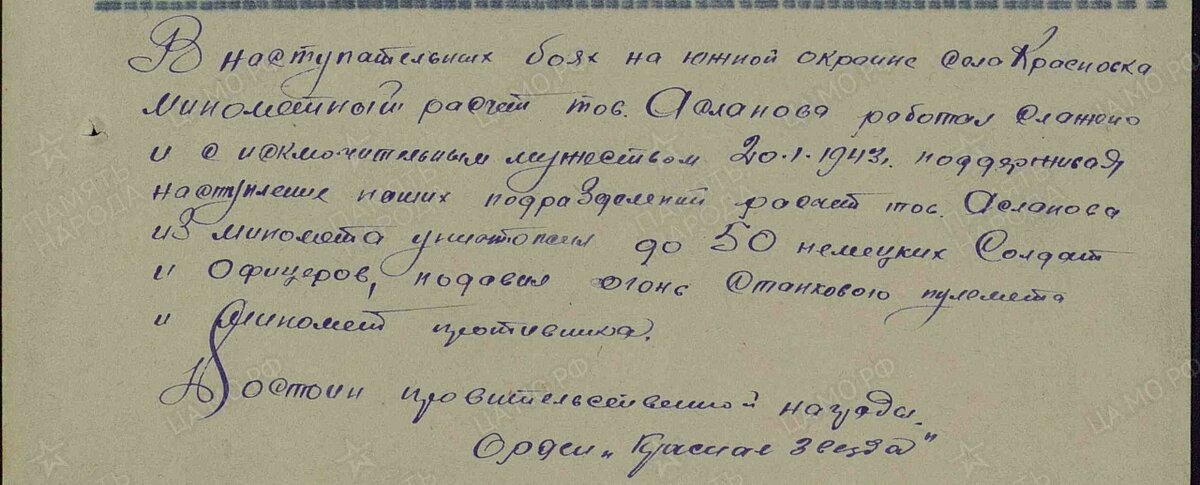 В наступательных боях на южной окраине села Красновка
минометный расчет тов. Асланова работал слажено
и с исключительным мужеством 20.1.1943г. поддерживая
наступление наших подразделений расчет тов. Асланова
из миномета уничтожил до 50 немецких солдат
и офицеров, подавил огонь станкового пулемета
и миномет противника.
Достоин правительственной награды.
Орден „Красная звезда"